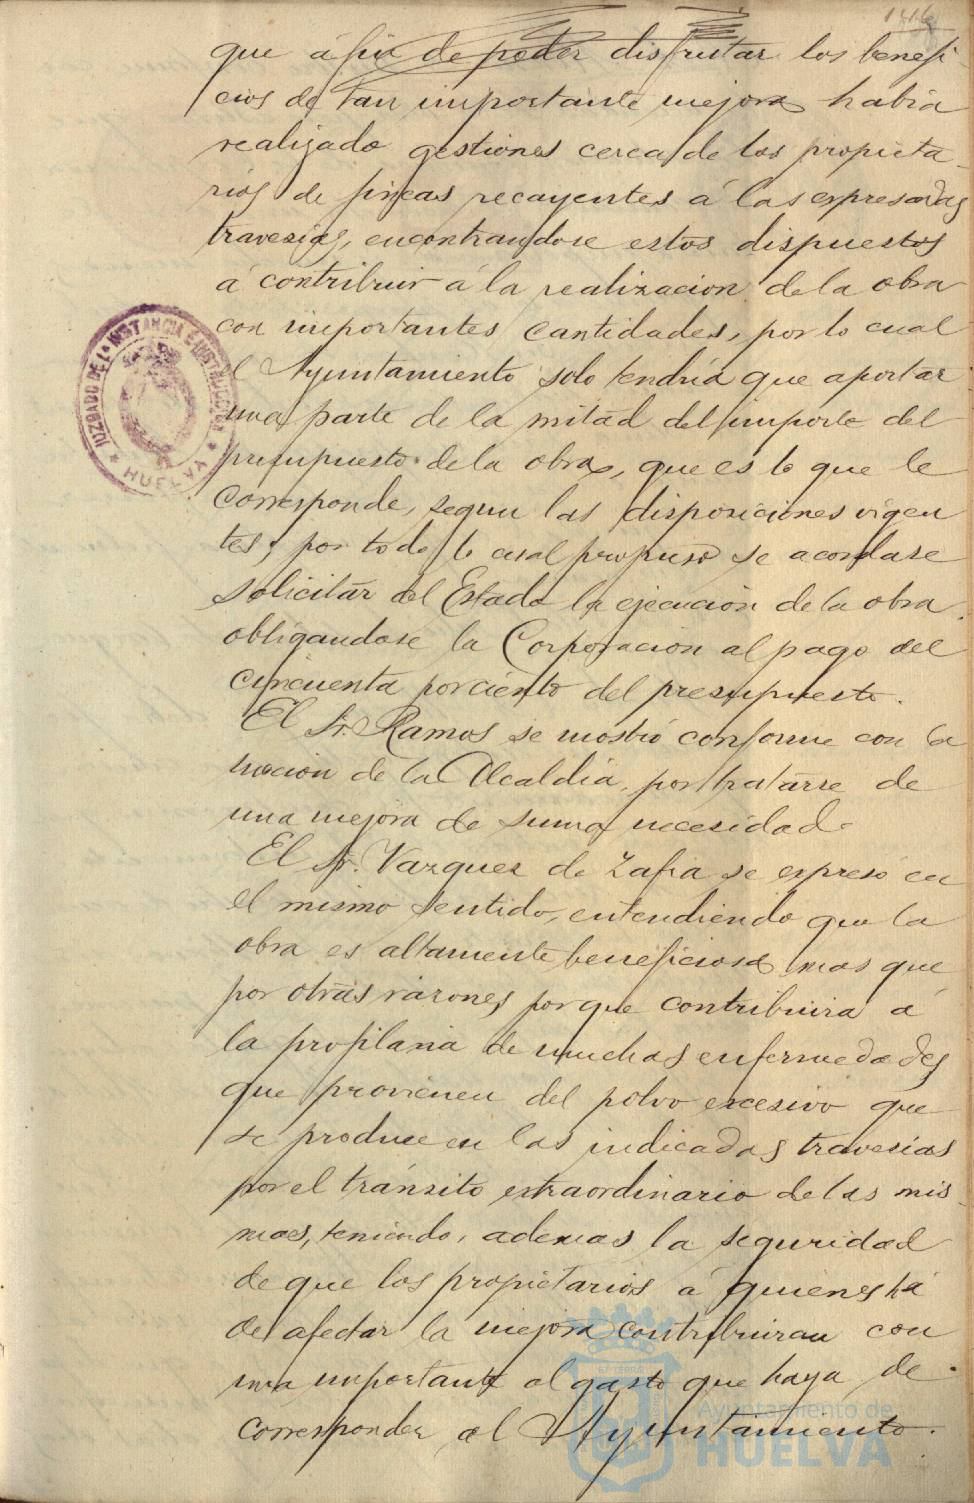 que á fin de poder disfrutar los benefi-
cios de tan importante mejora habia
realizado gestiones cerca de los propieta-
rios de fincas recayentes á las expresadas
travesias, encontrandose estos dispuestos
á contribuir á la realizacion de la obra
con importantes cantidades, por lo cual
el Ayuntamiento solo tendria que aportar
una parte de la mitad del importe del
presupuesto de la obra, que es lo que le
corresponde, segun las disposiciones vigen
tes; por todo lo cual propuso se acordase
solicitar del Estado la ejecucion de la obra
obligandose la Corporacion al pago del
cincuenta por ciento del presupuesto.
El Sr. Ramos se mostró conforme con la
mocion de la Alcaldia, por tratarse de
una mejora de suma necesidad.
El Sr. Vazquez de Zafra se expresó en
el mismo sentido, entendiendo que la
obra es altamente beneficiosa mas que
por otras razones porque contribuira á
la profilaxia de muchas enfermedades
que provienen del polvo excesivo que
se produce en las indicadas travesias
por el tránsito extraordinario de las mis-
mas, teniendo, ademas la seguridad
de que los propietarios á quienes há
de afectar la mejora contribuiran con
una importante al gasto que haya de
corresponder al Ayuntamiento.
JUZGADO DE 1ª INSTANCIA E INSTRUCCION
HUELVA
Ayuntamiento de
HUELVA